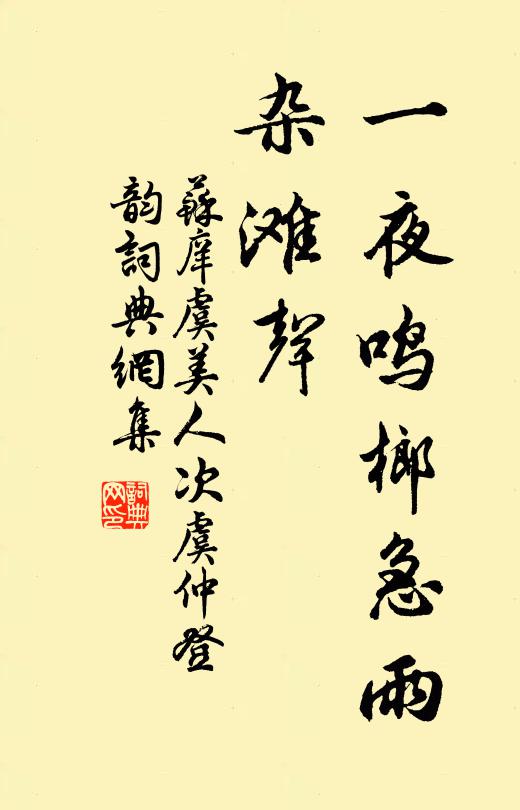 一夜鸣榔急雨
杂滩声
蘇庠虞美人次虞仲登
韵詞典網集
詞典
网印